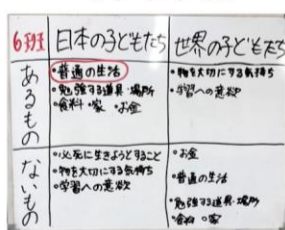 6班
日本の子どもたち
世界の子どもたち
あるもの
・普通の生活
・勉強する道具・場所
・食料・家・お金
・物を大切にする気持ち
・学習への意欲
ないもの
・必死に生きようとすること
・物を大切にする気持ち
・学習への意欲
・お金
・普通の生活
・勉強する道具・場所
・食料 ・家